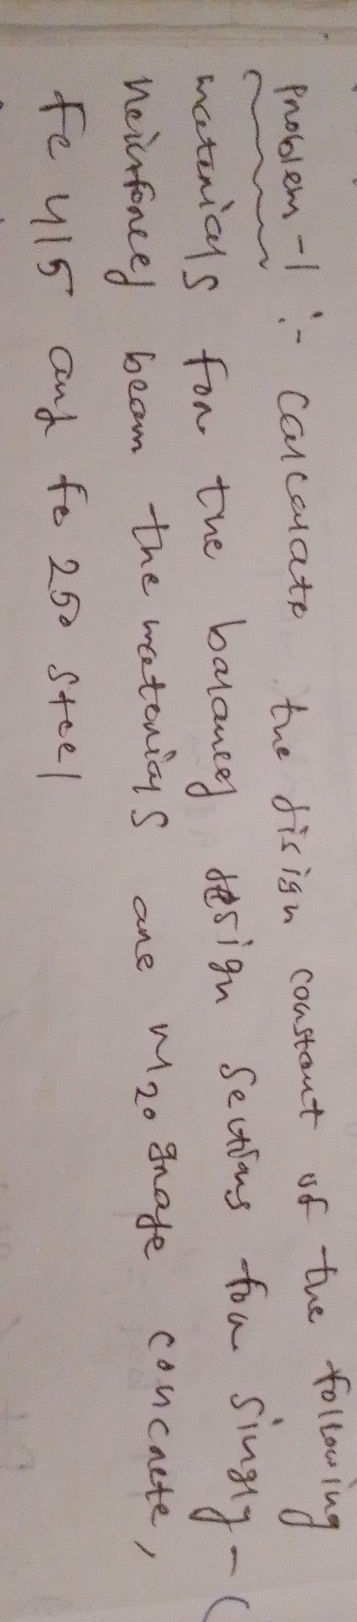 Problem-1 :- Calculate the disign constant of the following
materials for the balanced design sections for singly-
Reinforced beam the materials are M20 grade concrete,
Fe 415 and fe 250 steel